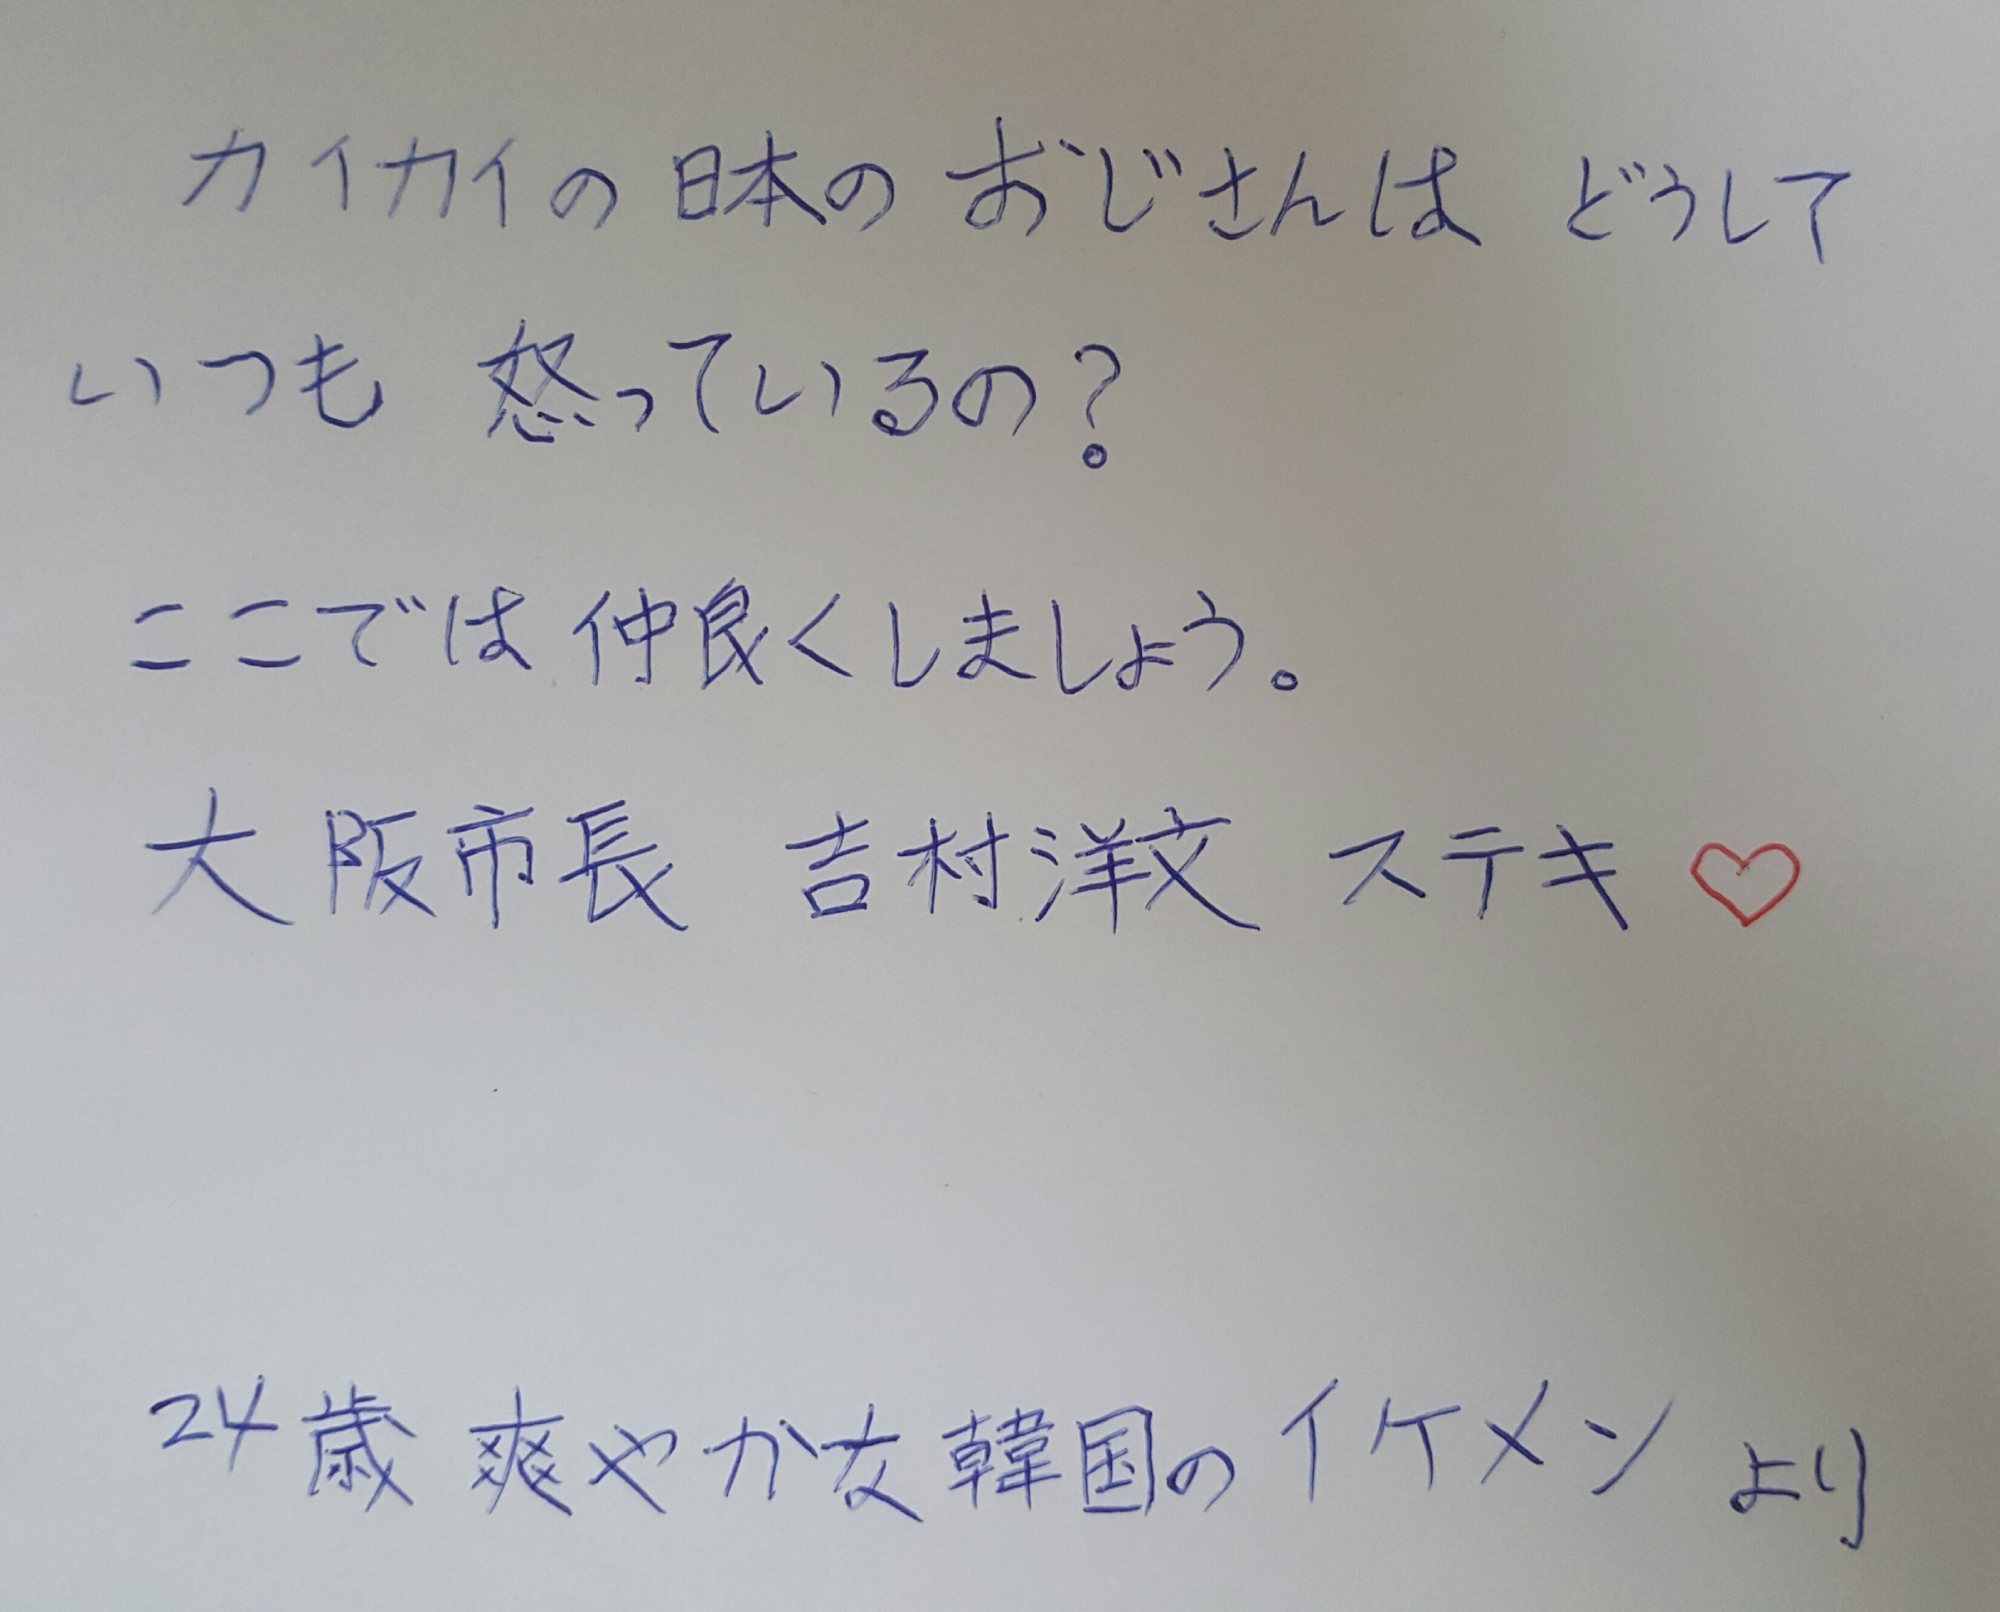 カイカイの日本のおじさんは どうして
いつも 怒っているの?
ここでは仲良くしましょう。
大阪市長 吉村洋文 ステキ♡
24歳 爽やかな韓国の イケメン より